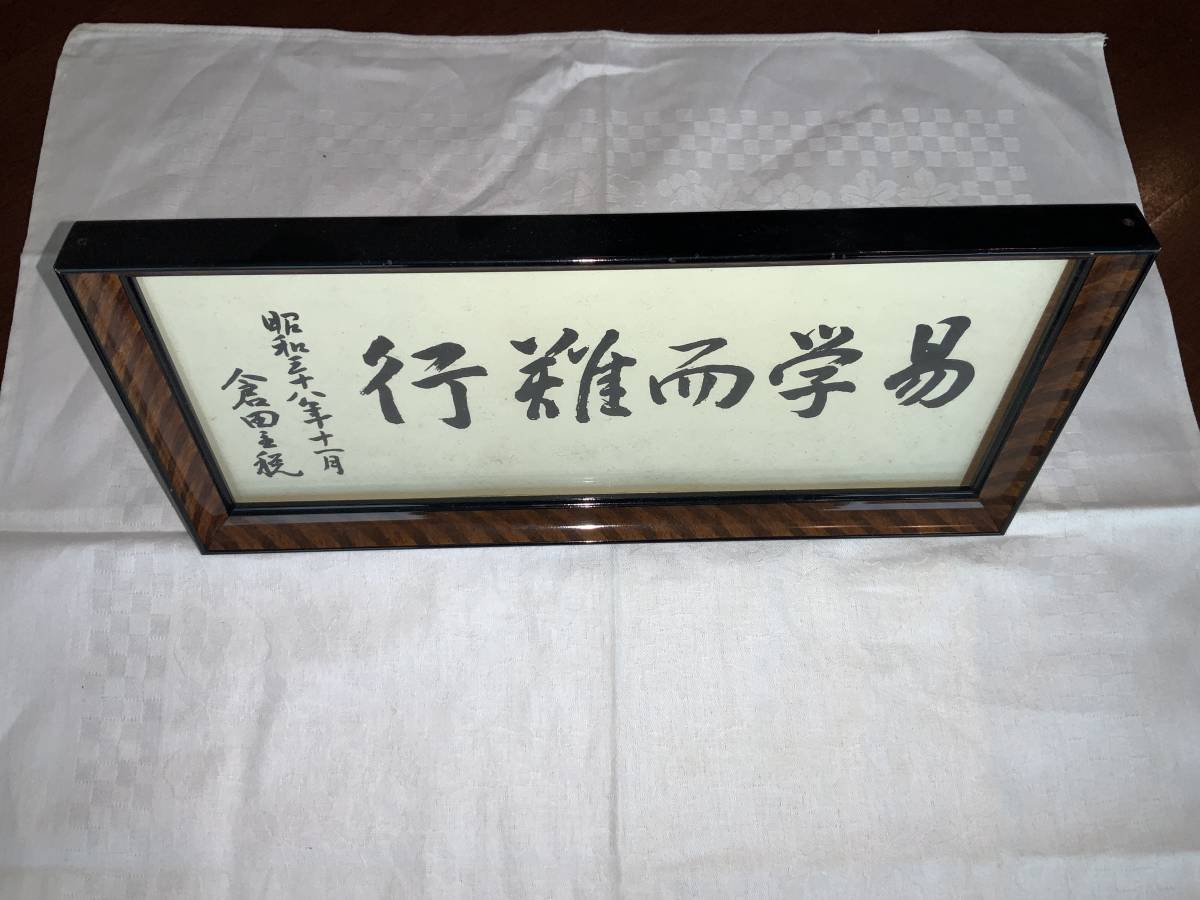 易学而難行
昭和三十八年十一月
倉田主税